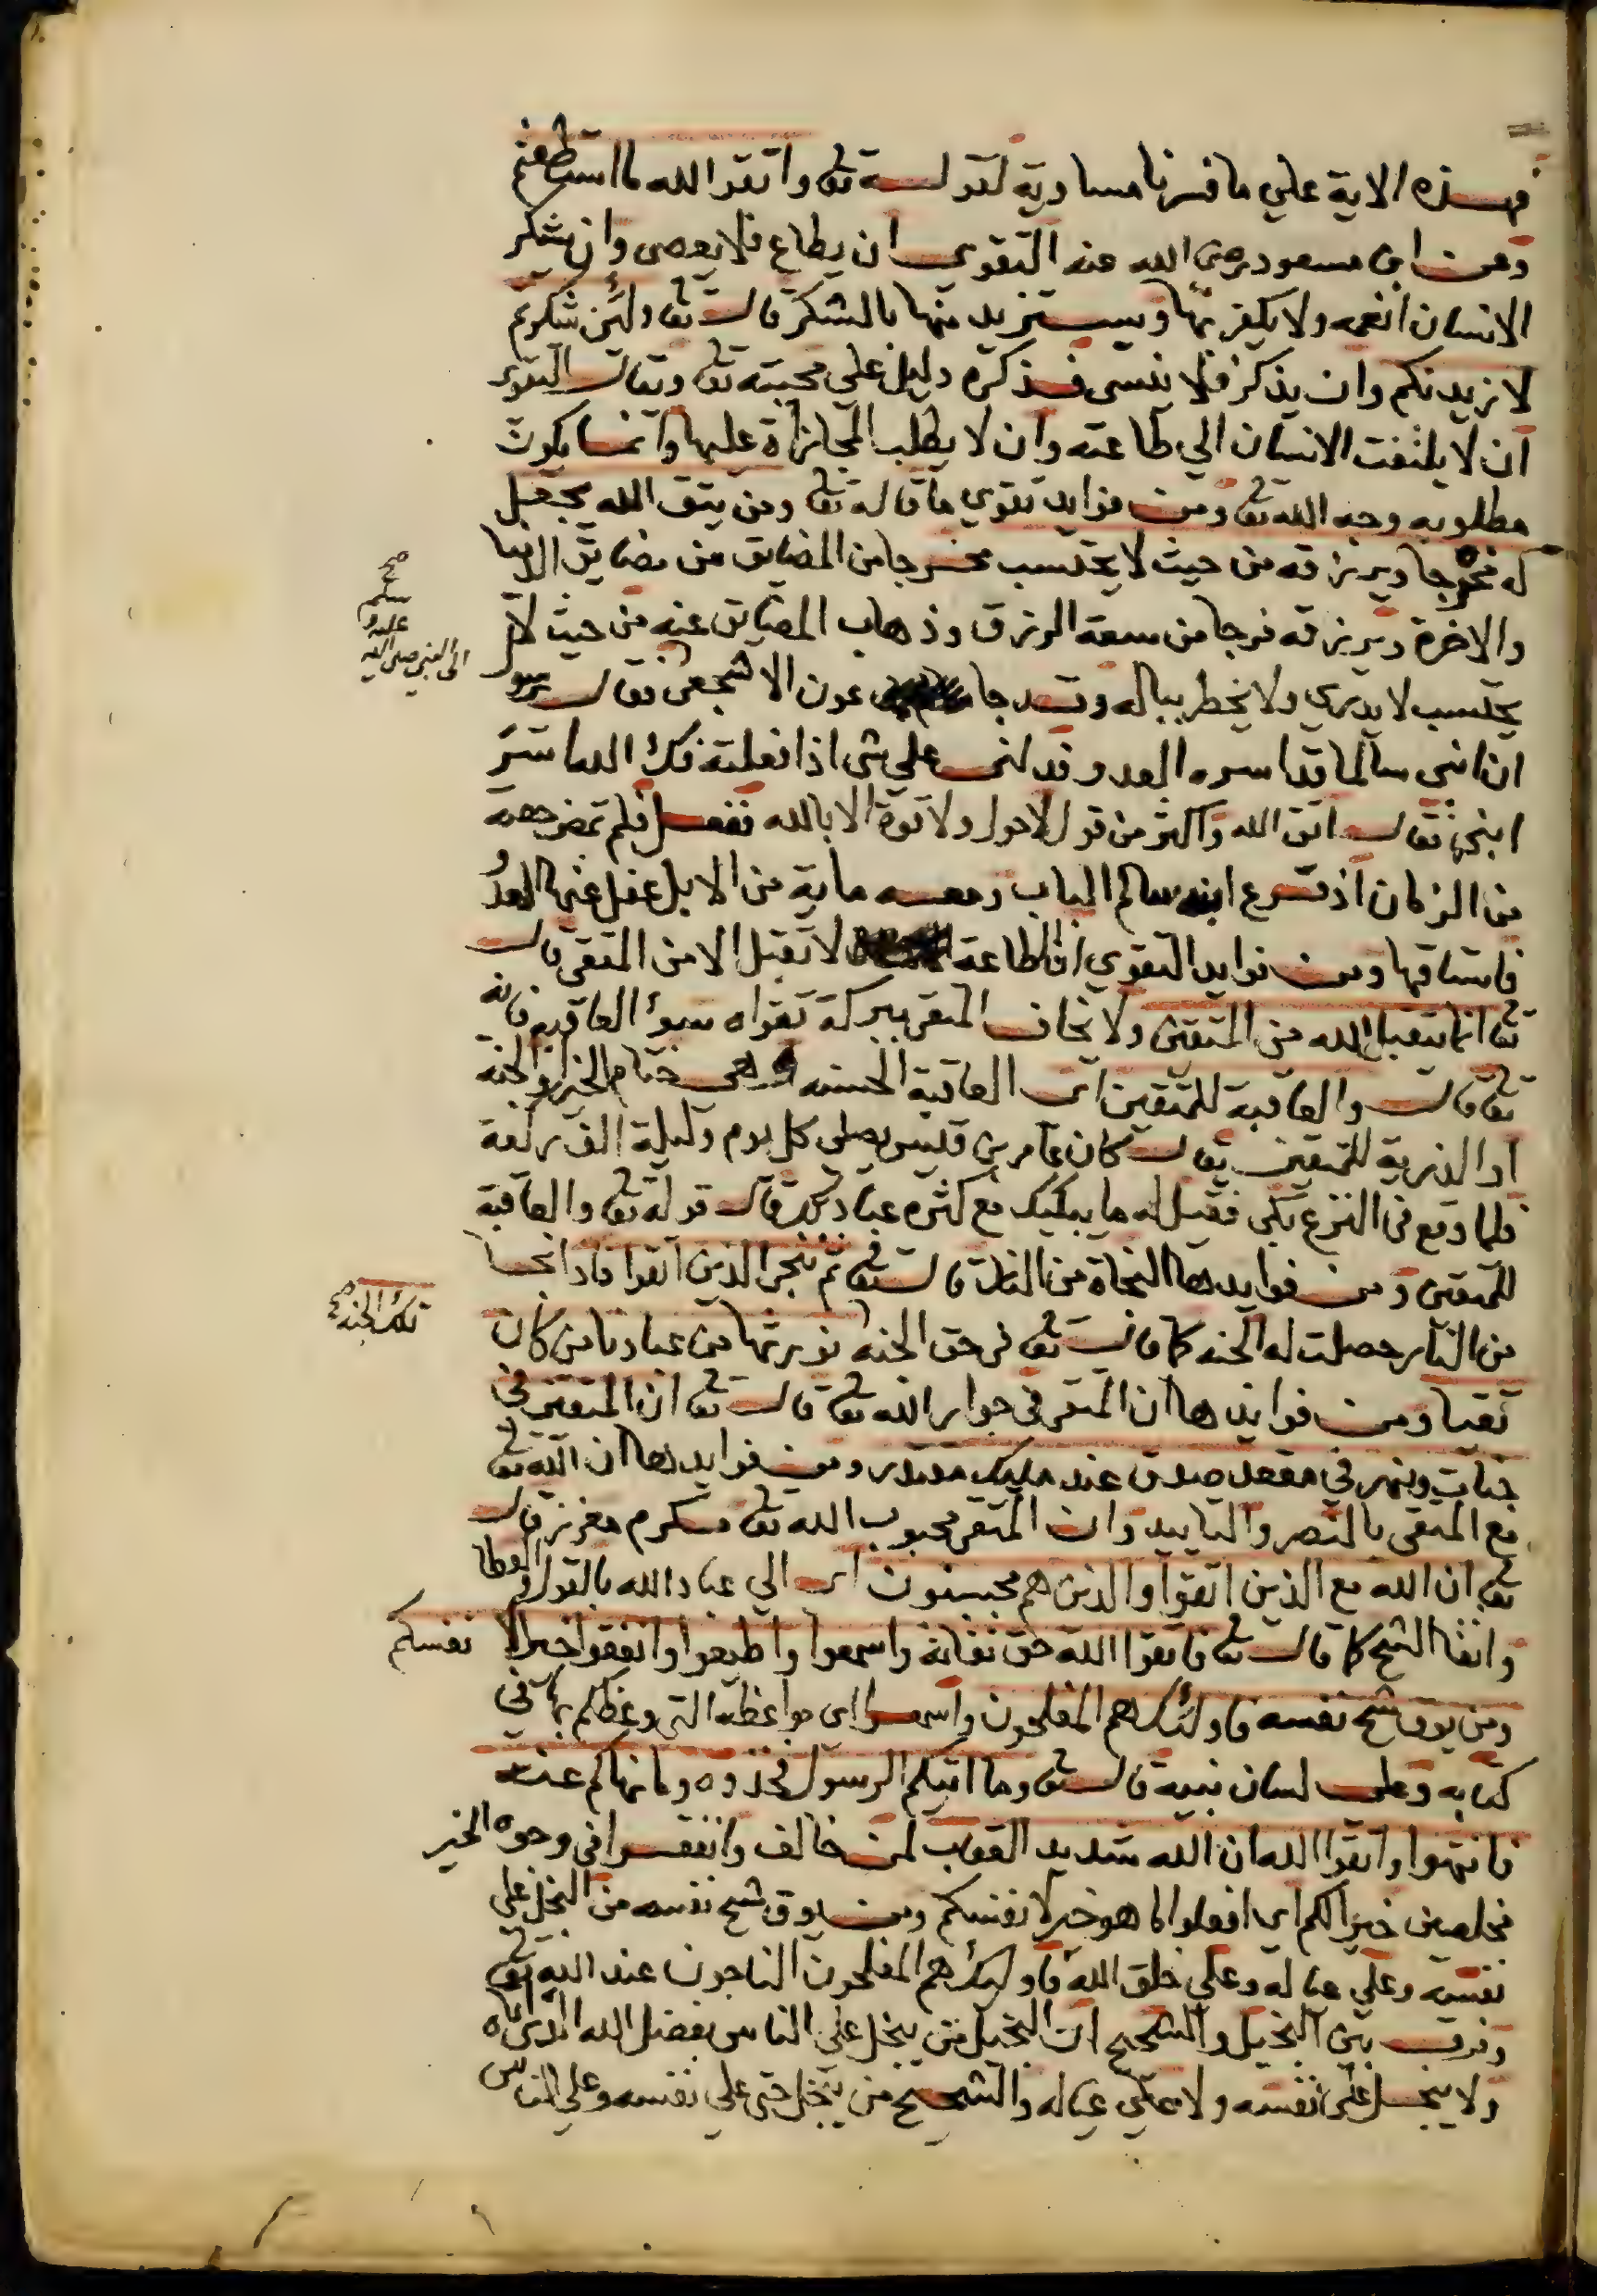 فهذه الاية علي ما فسرنا مساوية لقوله تعا واتقوا الله ما استطعتم
وعن ابن مسعود رضي الله عنه التقوى ان يطاع فلا يعصى وان يشكر
الانسان انعمه ولا يكفر بها ويستزيد منها بالشكر قال تعا ولئن شكرتم
لازيدنكم وان يذكر فلا ينسى فذكره دليل على محبته تعا ويقال التقوى
ان لا يلتفت الانسان الي طاعته وان لا يطلب المجازاة عليها وانما يكون
مطلوبه وجه الله تعا ومن فوايد تقوي ما قاله تعا ومن يتق الله يجعل
له مخرجا ويرزقه من حيث لا يحتسب مخرجا من المضايق من مضايق الدنيا
والاخرة ويرزقه فرجا من سعة الرزق وذهاب المضايق عنه من حيث لا
يحتسب لا يدري ولا يخطر بباله وقد جا عون الاشجعى فقال يرسول
الى النبي صلى الله
عليه و
سلم
صح
ان ابنى سالما قد اسره العدو فدلنى علي شى اذا فعلته فك الله اسر
ابنى فقال اتق الله واكثر من قول لا حول ولا قوة الا بالله ففعل فلم تمض جمعه
من الزمان اذ قرع ابنه سالم الباب ومعه ماية من الابل غفل عنها العدو
فاستاقها ومن فوايد التقوي ان الطاعة لا تقبل الا من المتقى قال
تعا انما يتقبل الله من المتقين ولا يخاف المتقى ببركة تقواه سوء العاقبة فانه
تعا قال والعاقبة للمتقين اى العاقبة الحسنه وهى ختام الخير او الجنة
او الذرية للمتقين يقال كان عامر بن قيس يصلى كل يوم وليلة الف ركعة
فلما وقع فى النزع بكى فقيل له ما يبكيك مع كثره عبادتك قال قوله تعا والعاقبة
للمتقين ومن فوايدها النجاة من النار قال تعا ثم ننجى الذين اتقوا فاذا نجا
من النار حصلت له الجنه كما قال تعا فى حق الجنه نورثها من عبادنا من كان
تلك الجنه صح
تقيا ومن فوايدها ان المتقى في جوار الله تعا قال تعا ان المتقين في
جنات ونهر في مقعد صدق عند مليك مقتدر ومن فوايدها ان الله تعا
مع المتقى بالنصر والتاييد وان المتقى محبوب الله تعا مكرم معزز قال
تعا ان الله مع الذين اتقوا والذين هم محسنون اى الي عباد الله بالقول والعطا
واتقا الشح كما قال تعا فاتقوا الله حق تقاته واسمعوا واطيعوا وانفقوا خيرا لانفسكم
ومن يوق شح نفسه فاولئك هم المفلحون واسمعوا اى مواعظه التى وعظكم بها في
كتابه وعلى لسان نبيه قال تعا وما اتيكم الرسول فخذوه وما نهاكم عنه
فانتهوا واتقوا الله ان الله شديد العقاب لمن خالف وانفقوا فى وجوه الخير
مخلصين خيرا لكم اى افعلوا ما هو خير لانفسكم ومن يوق شح نفسه من البخل على
نفسه وعلي عياله وعلي خلق الله فاوليك هم المفلحون الناجون عند الله تعا
وفرق بين البخيل والشحيح ان البخيل من يبخل على الناس بفضل الله الذى اتاه
ولا يبخل على نفسه ولا على عياله والشحيح من يبخل حتى علي نفسه وعلي الناس